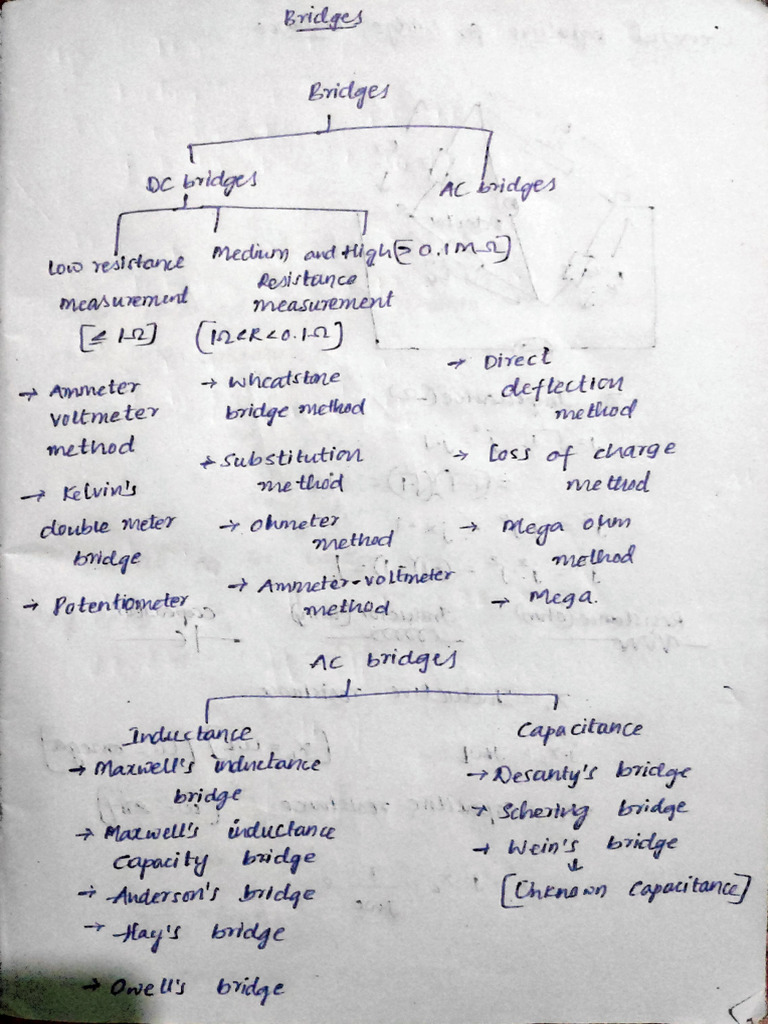 Bridges
Bridges
DC bridges
AC bridges
Low resistance
measurement
[≤ 1Ω]
Medium and High [> 0.1MΩ]
Resistance
measurement
[1Ω<R<0.1Ω]
→ Ammeter
voltmeter
method
→ Kelvin's
double meter
bridge
→ Potentiometer
→ Wheatstone
bridge method
→ Substitution
method
→ Ohmeter
method
→ Ammeter-voltmeter
method
→ Direct
deflection
method
→ Loss of charge
method
→ Mega ohm
method
→ Mega.
AC bridges
Inductance
→ Maxwell's inductance
bridge
→ Maxwell's inductance
capacity bridge
→ Anderson's bridge
→ Hay's bridge
→ Owell's bridge
Capacitance
→ Desanty's bridge
→ Schering bridge
→ Wein's bridge
↓
[Unknown capacitance]